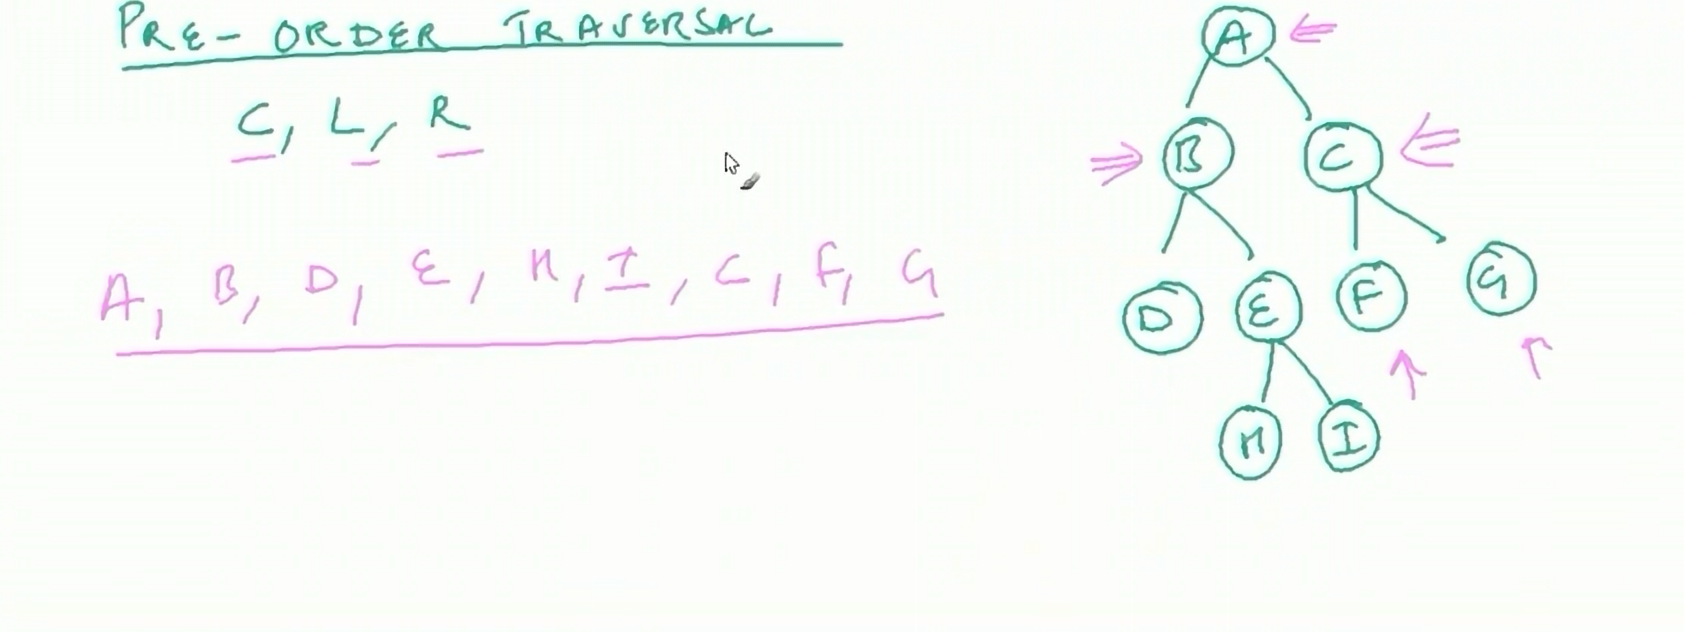 PRE-ORDER TRAVERSAL
C, L, R
A, B, D, E, H, I, C, F, G
A
B C
D E F G
H I